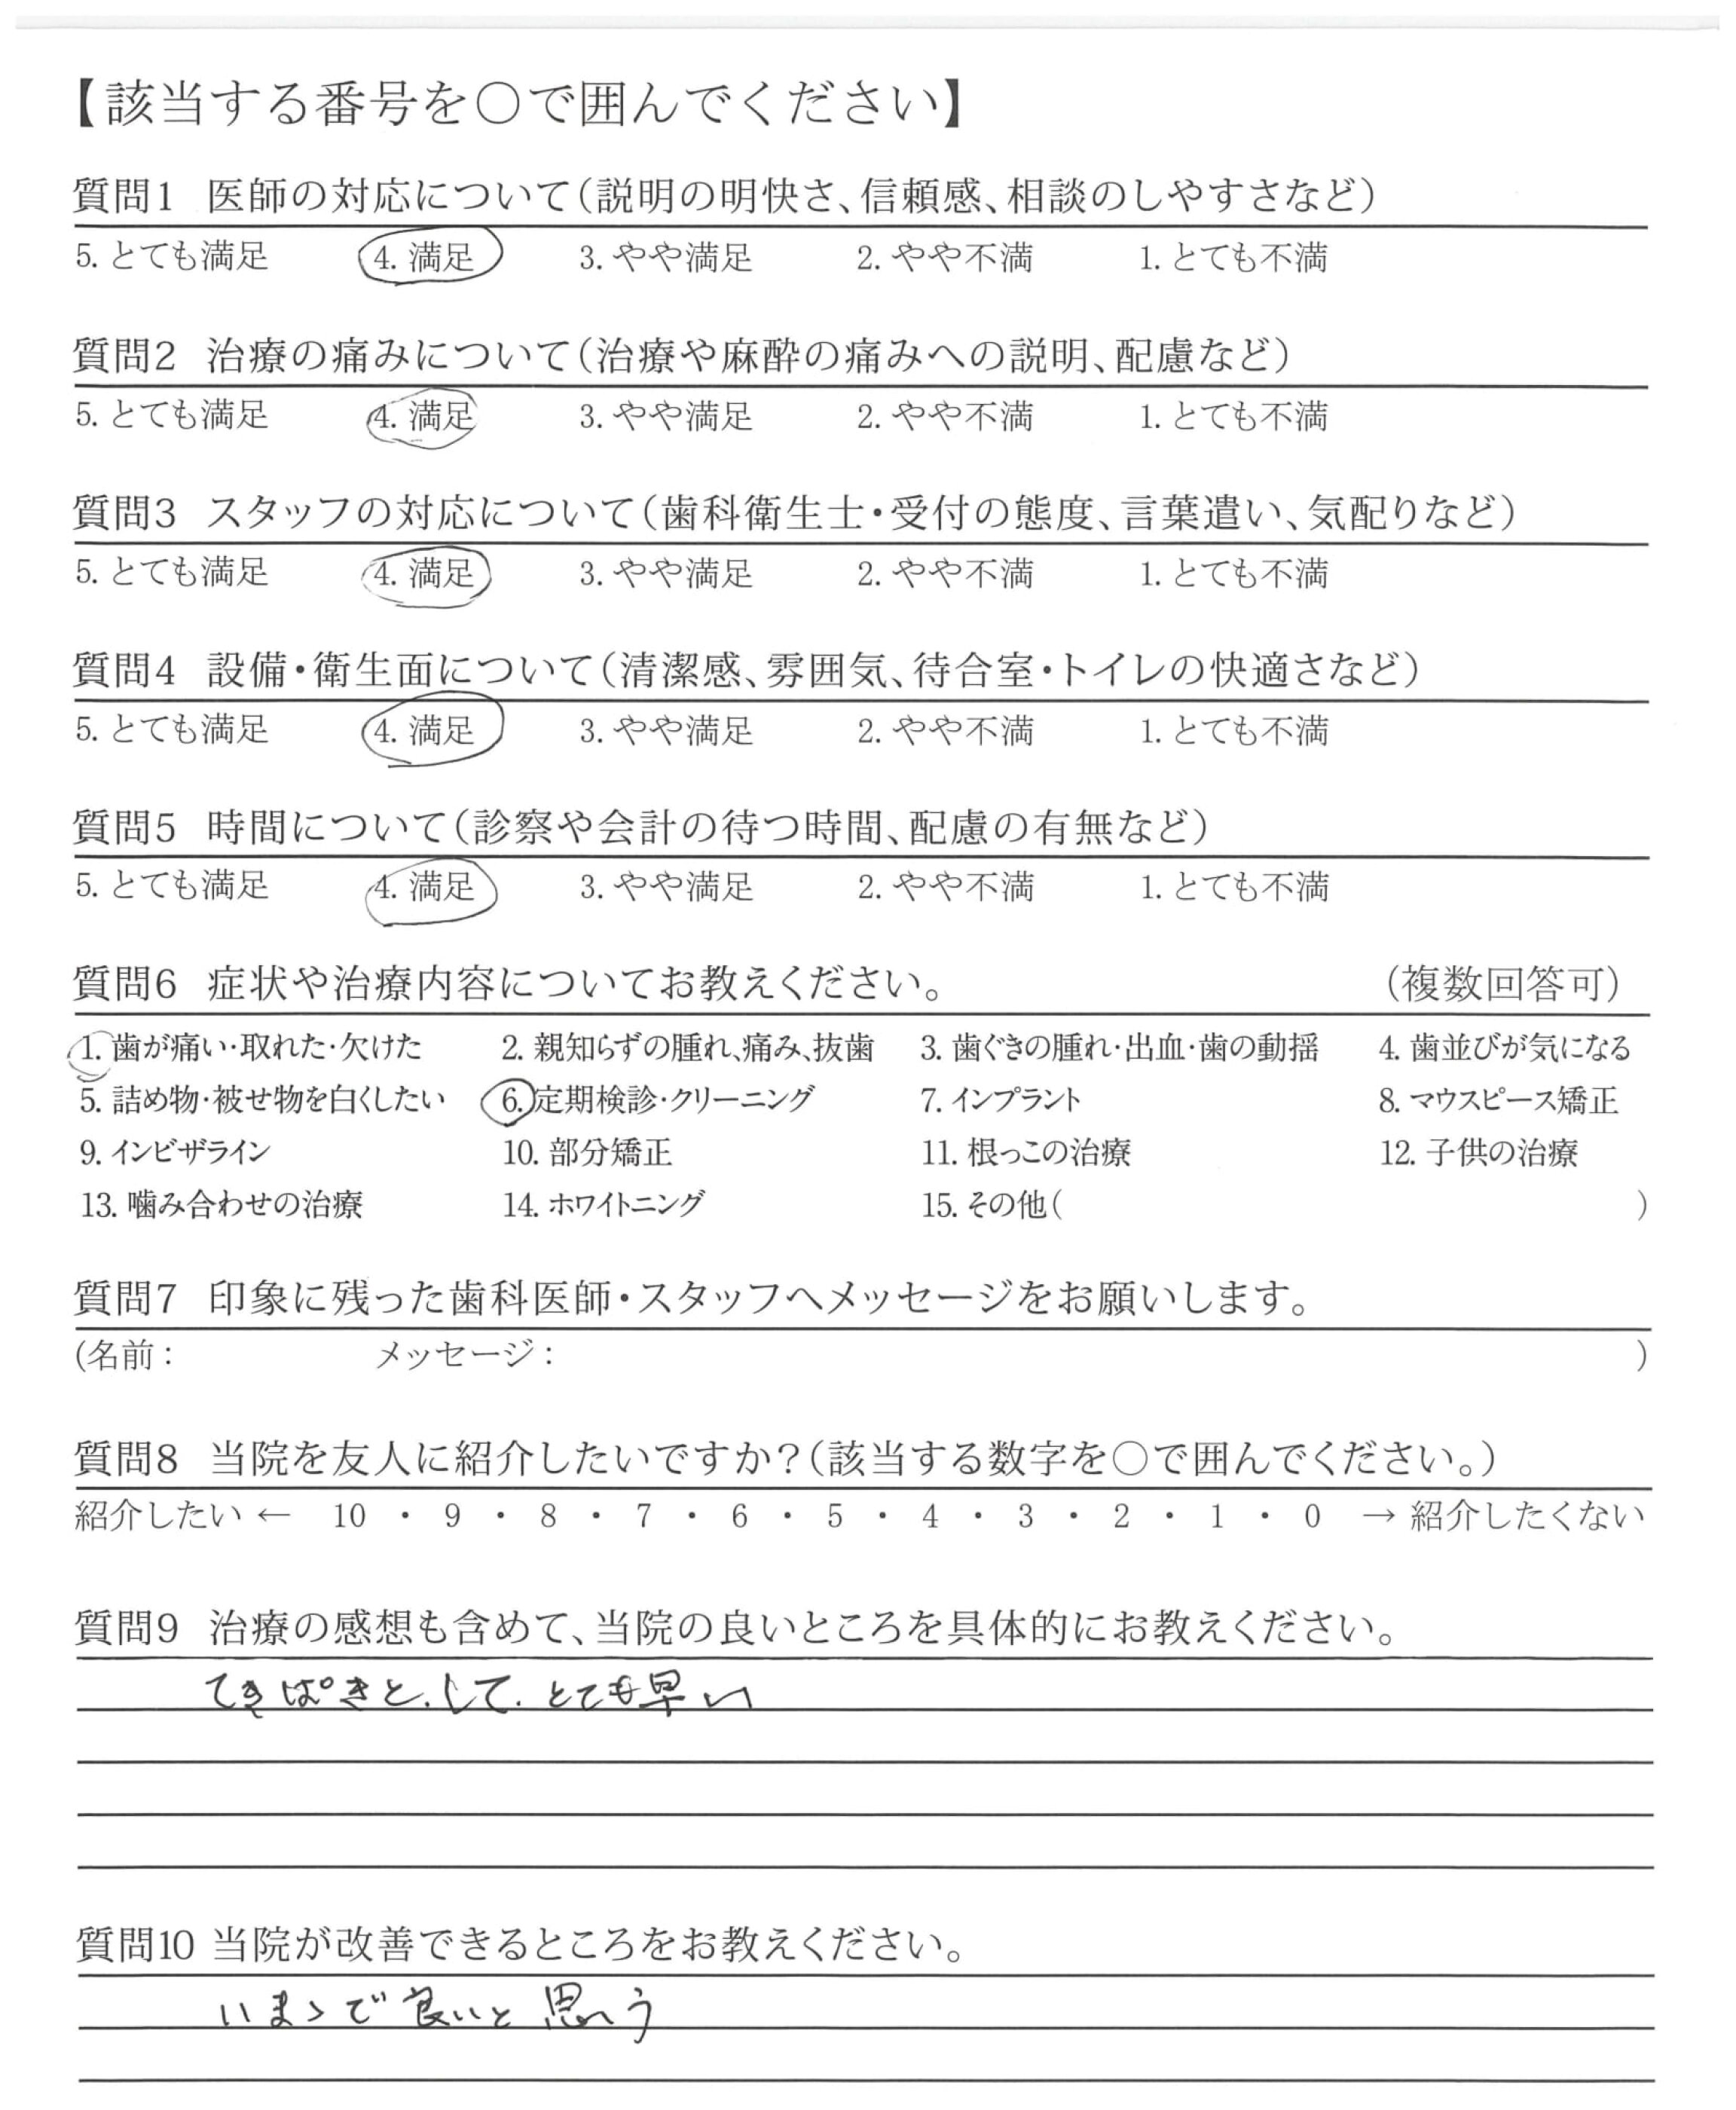 【該当する番号を○で囲んでください】
質問1 医師の対応について(説明の明快さ、信頼感、相談のしやすさなど)
5. とても満足 4. 満足 3. やや満足 2. やや不満 1. とても不満
質問2 治療の痛みについて(治療や麻酔の痛みへの説明、配慮など)
5. とても満足 4. 満足 3. やや満足 2. やや不満 1. とても不満
質問3 スタッフの対応について(歯科衛生士・受付の態度、言葉遣い、気配りなど)
5. とても満足 4. 満足 3. やや満足 2. やや不満 1. とても不満
質問4 設備・衛生面について(清潔感、雰囲気、待合室・トイレの快適さなど)
5. とても満足 4. 満足 3. やや満足 2. やや不満 1. とても不満
質問5 時間について(診察や会計の待つ時間、配慮の有無など)
5. とても満足 4. 満足 3. やや満足 2. やや不満 1. とても不満
質問6 症状や治療内容についてお教えください。 (複数回答可)
1. 歯が痛い・取れた・欠けた 2. 親知らずの腫れ、痛み、抜歯 3. 歯ぐきの腫れ・出血・歯の動揺 4. 歯並びが気になる
5. 詰め物・被せ物を白くしたい 6. 定期検診・クリーニング 7. インプラント 8. マウスピース矯正
9. インビザライン 10. 部分矯正 11. 根っこの治療 12. 子供の治療
13. 噛み合わせの治療 14. ホワイトニング 15. その他( )
質問7 印象に残った歯科医師・スタッフへメッセージをお願いします。
(名前: メッセージ: )
質問8 当院を友人に紹介したいですか?(該当する数字を○で囲んでください。)
紹介したい ← 10 ・ 9 ・ 8 ・ 7 ・ 6 ・ 5 ・ 4 ・ 3 ・ 2 ・ 1 ・ 0 → 紹介したくない
質問9 治療の感想も含めて、当院の良いところを具体的にお教えください。
てきぱきと.して.とても早い
質問10 当院が改善できるところをお教えください。
いまゝで良いと思う